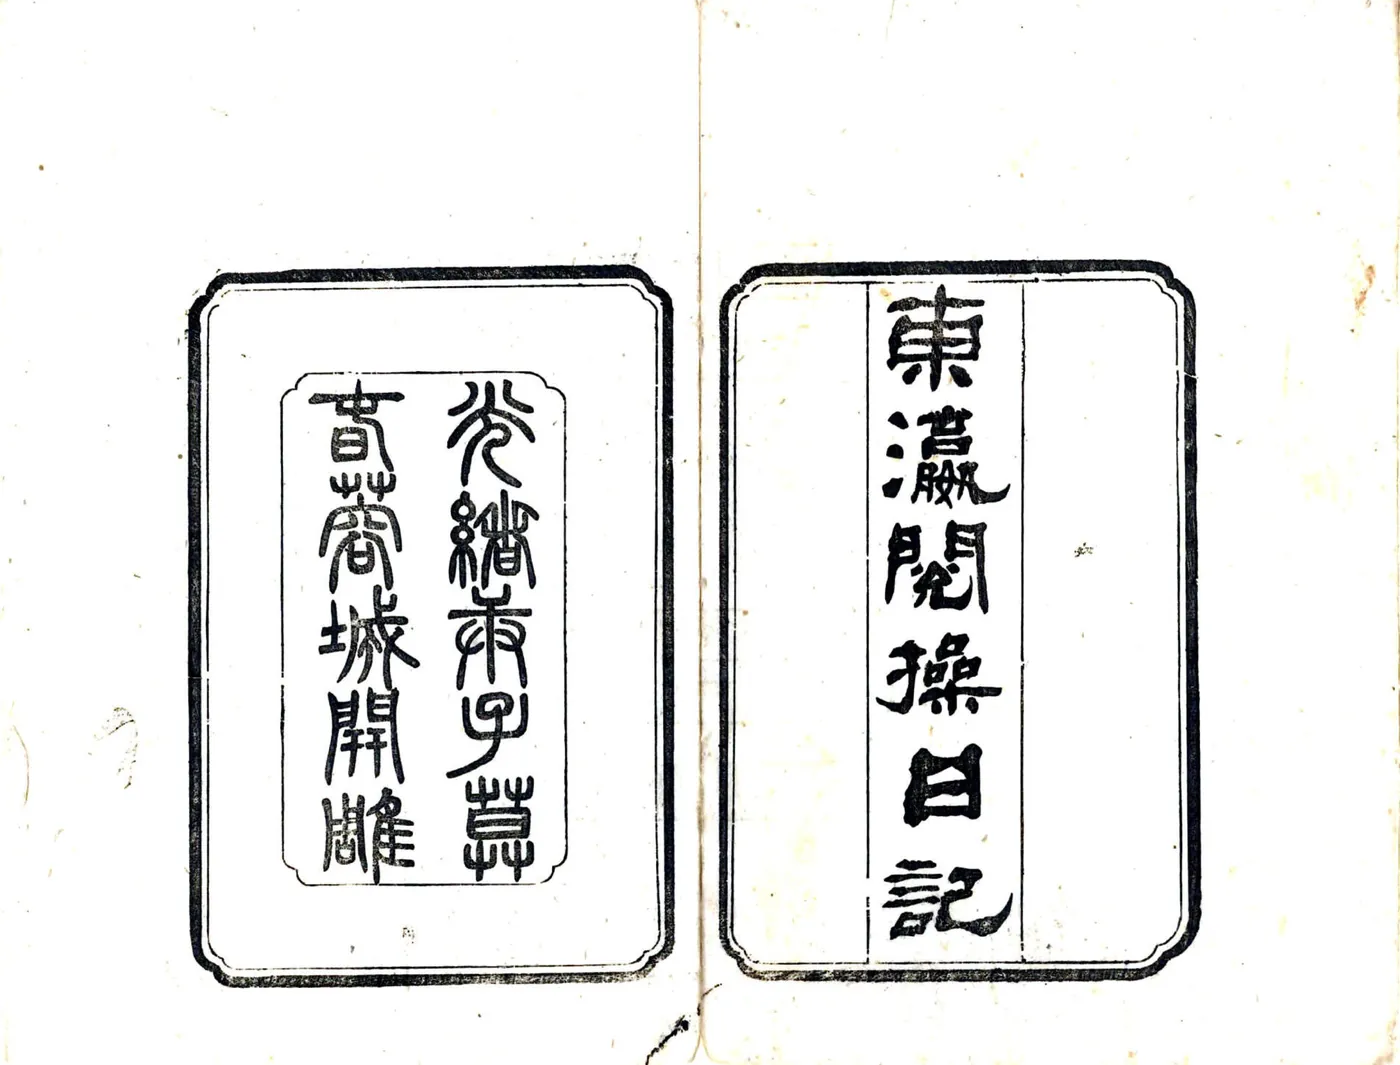 東瀛閱操日記
光緒庚子莫
春蓉城開雕